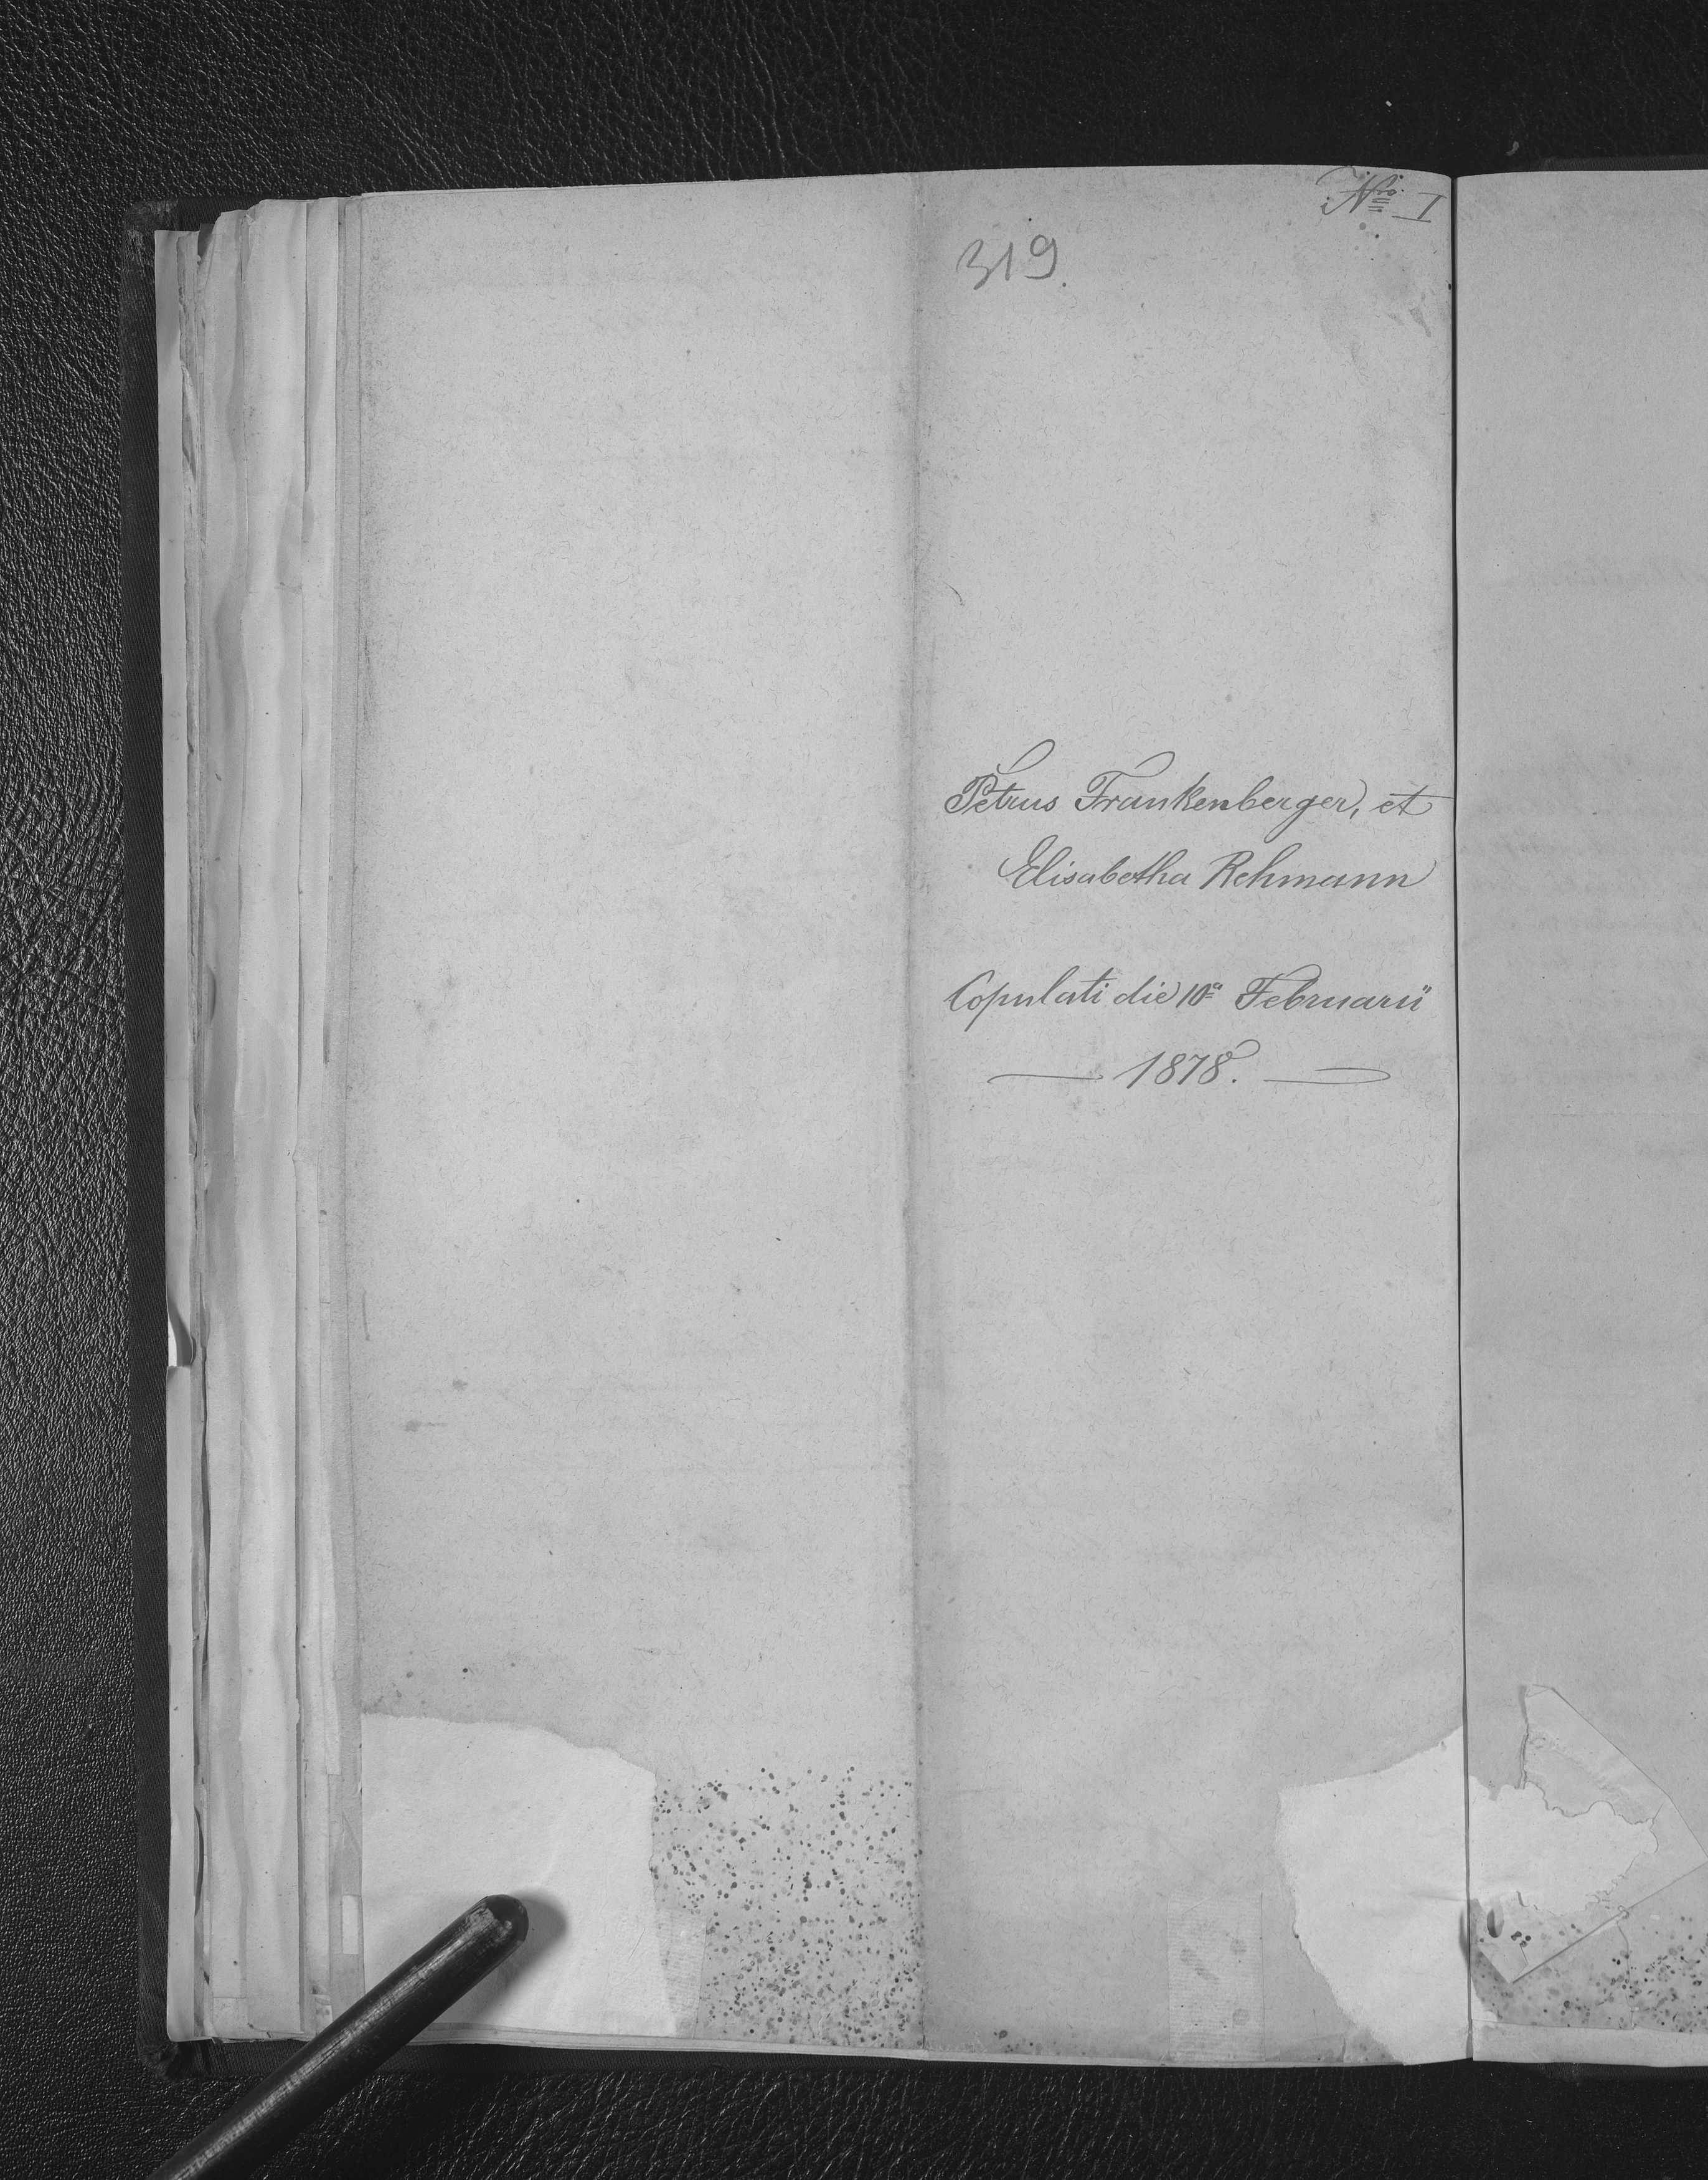 Nro. I
319.
Petrus Frankenberger, et
Elisabetha Rehmann
Copulati die 10a Februarii
1878.